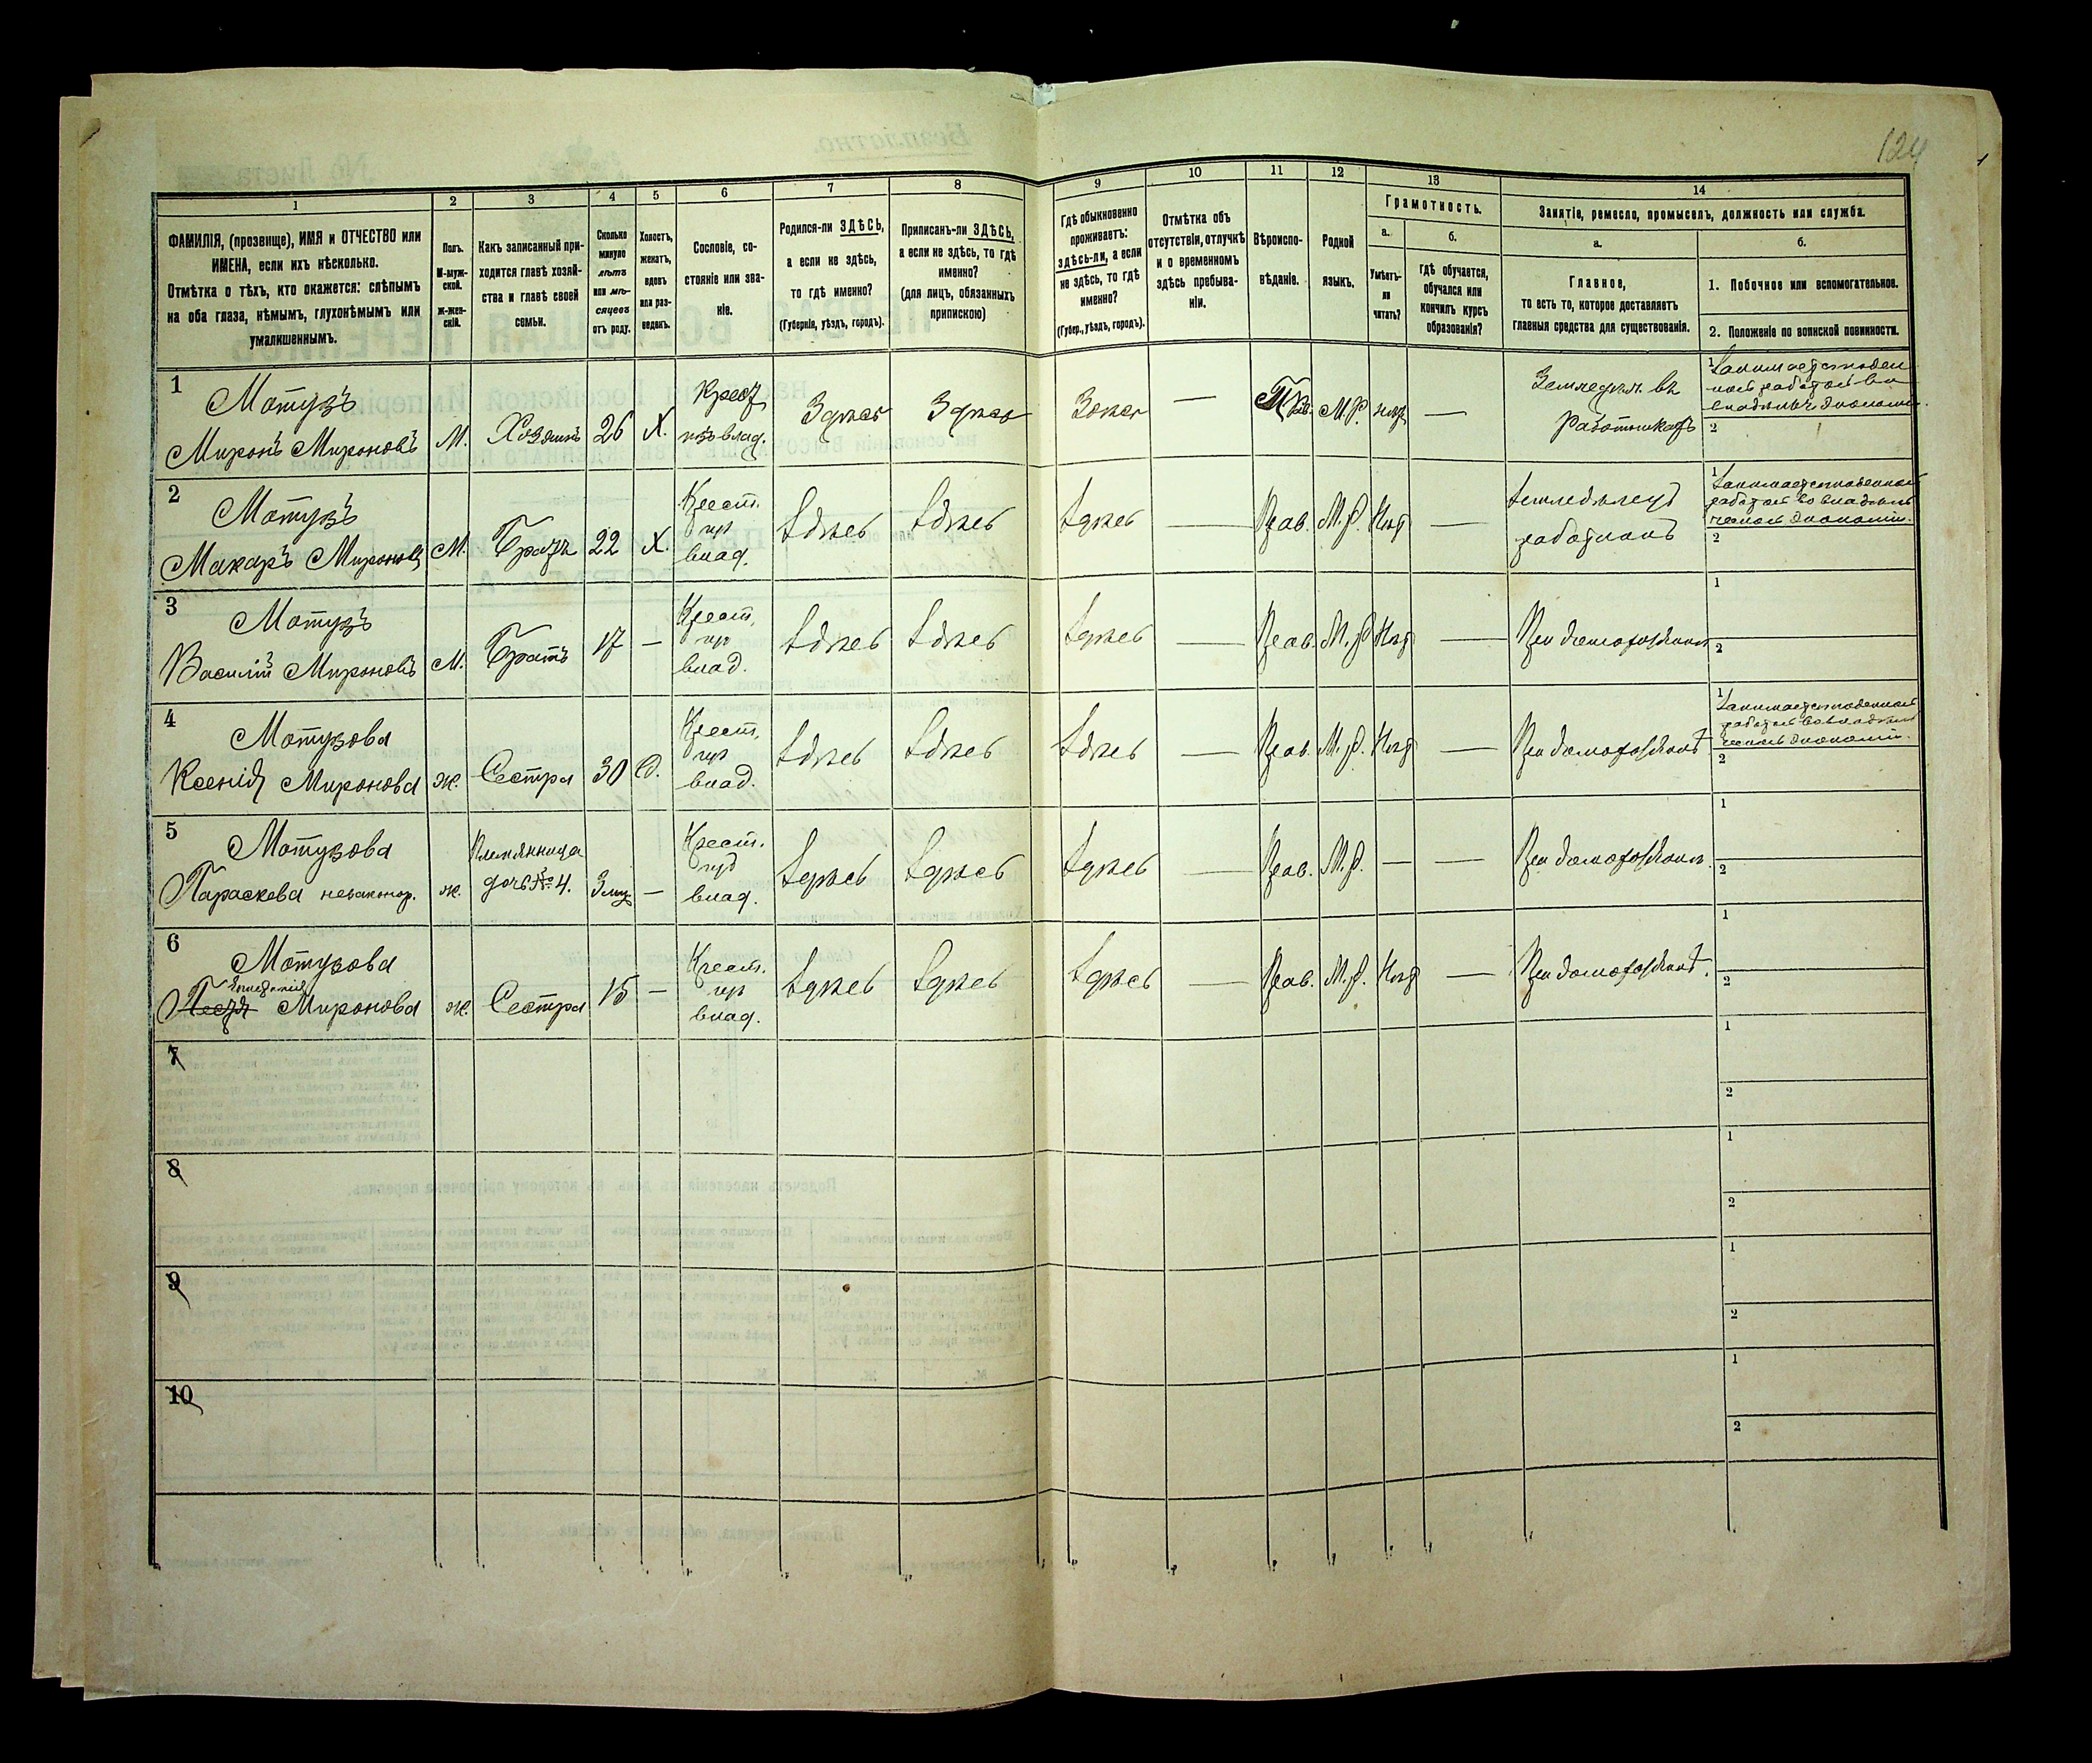 124
1
2
3
4
5
6
7
8
9
10
11
12
13
14
ФАМИЛІЯ, (прозвище), ИМЯ и ОТЧЕСТВО или
ИМЕНА, если ихъ нѣсколько.
Отмѣтка о тѣхъ, кто окажется: слѣпымъ
на оба глаза, нѣмымъ, глухонѣмымъ или
умалишеннымъ.
Полъ.
М-муж-
ской.
ж-жен-
скій.
Какъ записанный при-
ходится главѣ хозяй-
ства и главѣ своей
семьи.
Сколько
минуло
лѣтъ
или мѣ-
сяцевъ
отъ роду.
Холостъ,
женатъ,
вдовъ
или раз-
веденъ.
Сословіе, со-
стояніе или зва-
ніе.
Родился-ли ЗДѢСЬ,
а если не здѣсь,
то гдѣ именно?
(Губернія, уѣздъ, городъ).
Приписанъ-ли ЗДѢСЬ,
а если не здѣсь, то гдѣ
именно?
(для лицъ, обязанныхъ
припискою)
Гдѣ обыкновенно
проживаетъ:
здѣсь-ли, а если
не здѣсь, то гдѣ
именно?
(Губер., уѣздъ, городъ).
Отмѣтка объ
отсутствіи, отлучкѣ
и о временномъ
здѣсь пребыва-
ніи.
Вѣроиспо-
вѣданіе.
Родной
языкъ.
Грамотность.
а.
Умѣетъ-
ли
читать?
б.
гдѣ обучается,
обучался или
кончилъ курсъ
образованія?
Занятіе, ремесло, промыселъ, должность или служба.
а.
Главное,
то есть то, которое доставляетъ
главныя средства для существованія.
б.
1. Побочное или вспомогательное.
2. Положеніе по воинской повинности.
1
Мотузъ
Миронъ Мироновъ
М.
Хозяинъ
26
Х.
Крест
изъ влад.
Здѣсь
Здѣсь
Здѣсь
—
Пр
М.Р.
нѣтъ
—
Земледѣл. въ
Работникахъ
1
2
2
Мотузъ
Макаръ Мироновъ
М.
Братъ
22
Х.
Крест.
изъ
влад.
Здѣсь
Здѣсь
Здѣсь
—
Прав.
М.Р.
Нѣтъ
—
земледѣлецъ
работникъ
1
2
3
Мотузъ
Василій Мироновъ
М.
Братъ
17
—
Крест.
изъ
влад.
Здѣсь
Здѣсь
Здѣсь
—
Прав.
М.Р.
Нѣтъ
—
При домохозяинѣ
1
2
4
Мотузова
Ксенія Миронова
ж.
Сестра
30
Д.
Крест.
изъ
влад.
Здѣсь
Здѣсь
Здѣсь
—
Прав.
М.Р.
Нѣтъ
—
При домохозяинѣ
1 Занимается поденной
работой во владѣль
ческой экономіи.
2
5
Мотузова
Параскева незаконор.
ж.
Племянница
дочь № 4.
3 мц
—
Крест.
изъ
влад.
Здѣсь
Здѣсь
Здѣсь
—
Прав.
М.Р.
—
—
При домохозяинѣ.
1
2
6
Мотузова
Миронова
ж.
Сестра
15
—
Крест.
изъ
влад.
Здѣсь
Здѣсь
Здѣсь
—
Прав.
М.Р.
Нѣтъ
—
При домохозяинѣ.
1
2
7
1
2
8
1
2
9
1
2
10
1
2